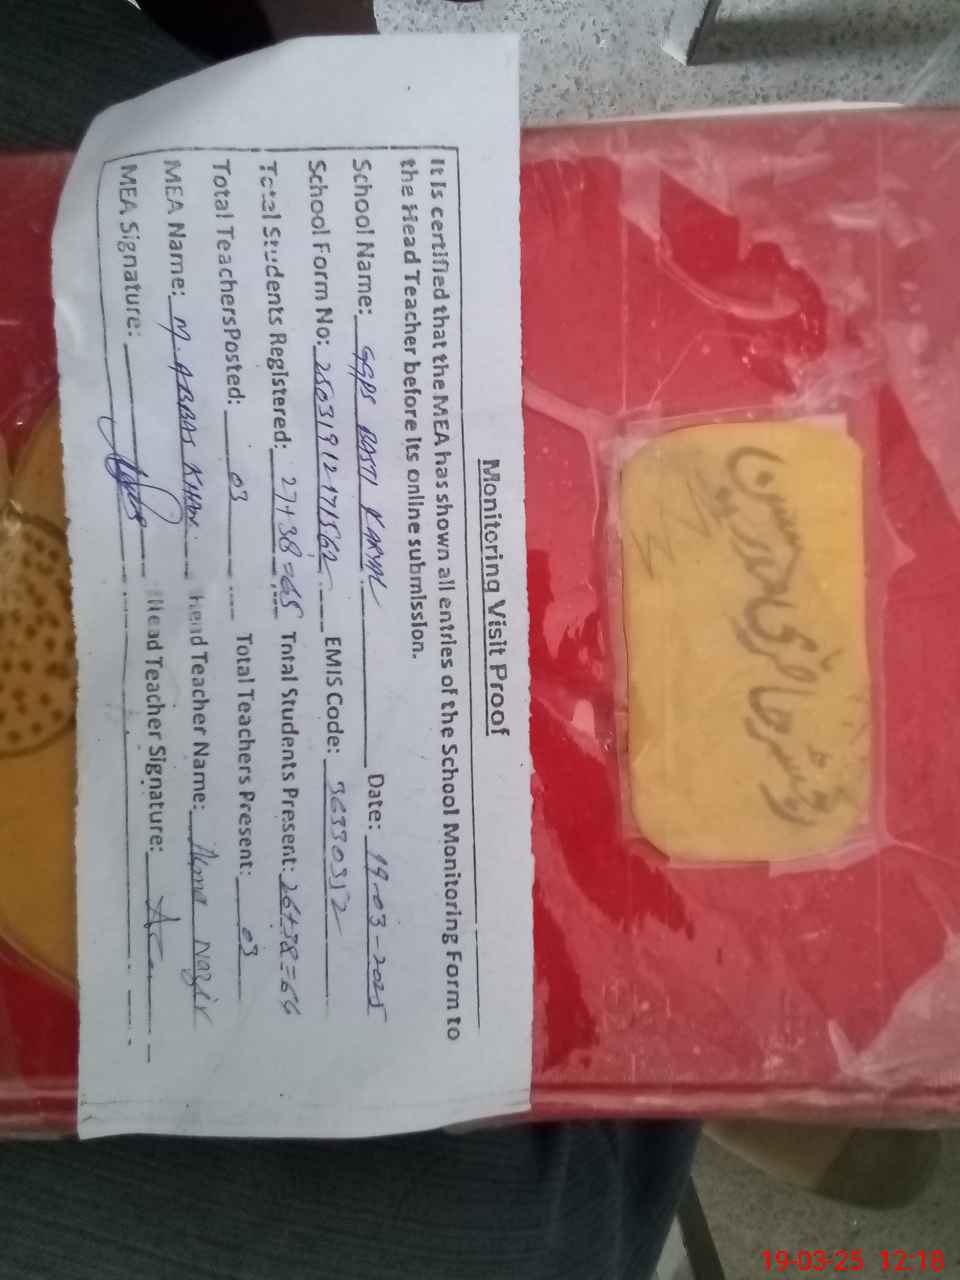 Monitoring Visit Proof
It is certified that the MEA has shown all entries of the School Monitoring Form to
the Head Teacher before its online submission.
School Name: GGPS BASTI KARYAL Date: 19-03-2025
School Form No: 25031912171562 EMIS Code: 36330312
Total Students Registered: 27+38=65 Total Students Present: 26+38=64
Total Teachers Posted: 03 Total Teachers Present: 03
MEA Name: M. ABBAS KHAN Head Teacher Name: Asma Nazir
MEA Signature: Head Teacher Signature:
رجسٹر حاضری مدرسین
19-03-25 12:18